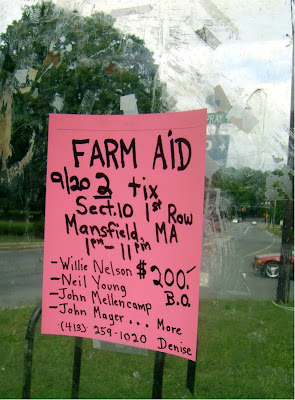 FARM AID
9/20 2 tix
Sect. 10 1st Row
Mansfield, MA
1pm - 11pm
- Willie Nelson $200.-
- Neil Young B.O.
- John Mellencamp
- John Mager... More
- (413) 259-1020 Denise
PRAY